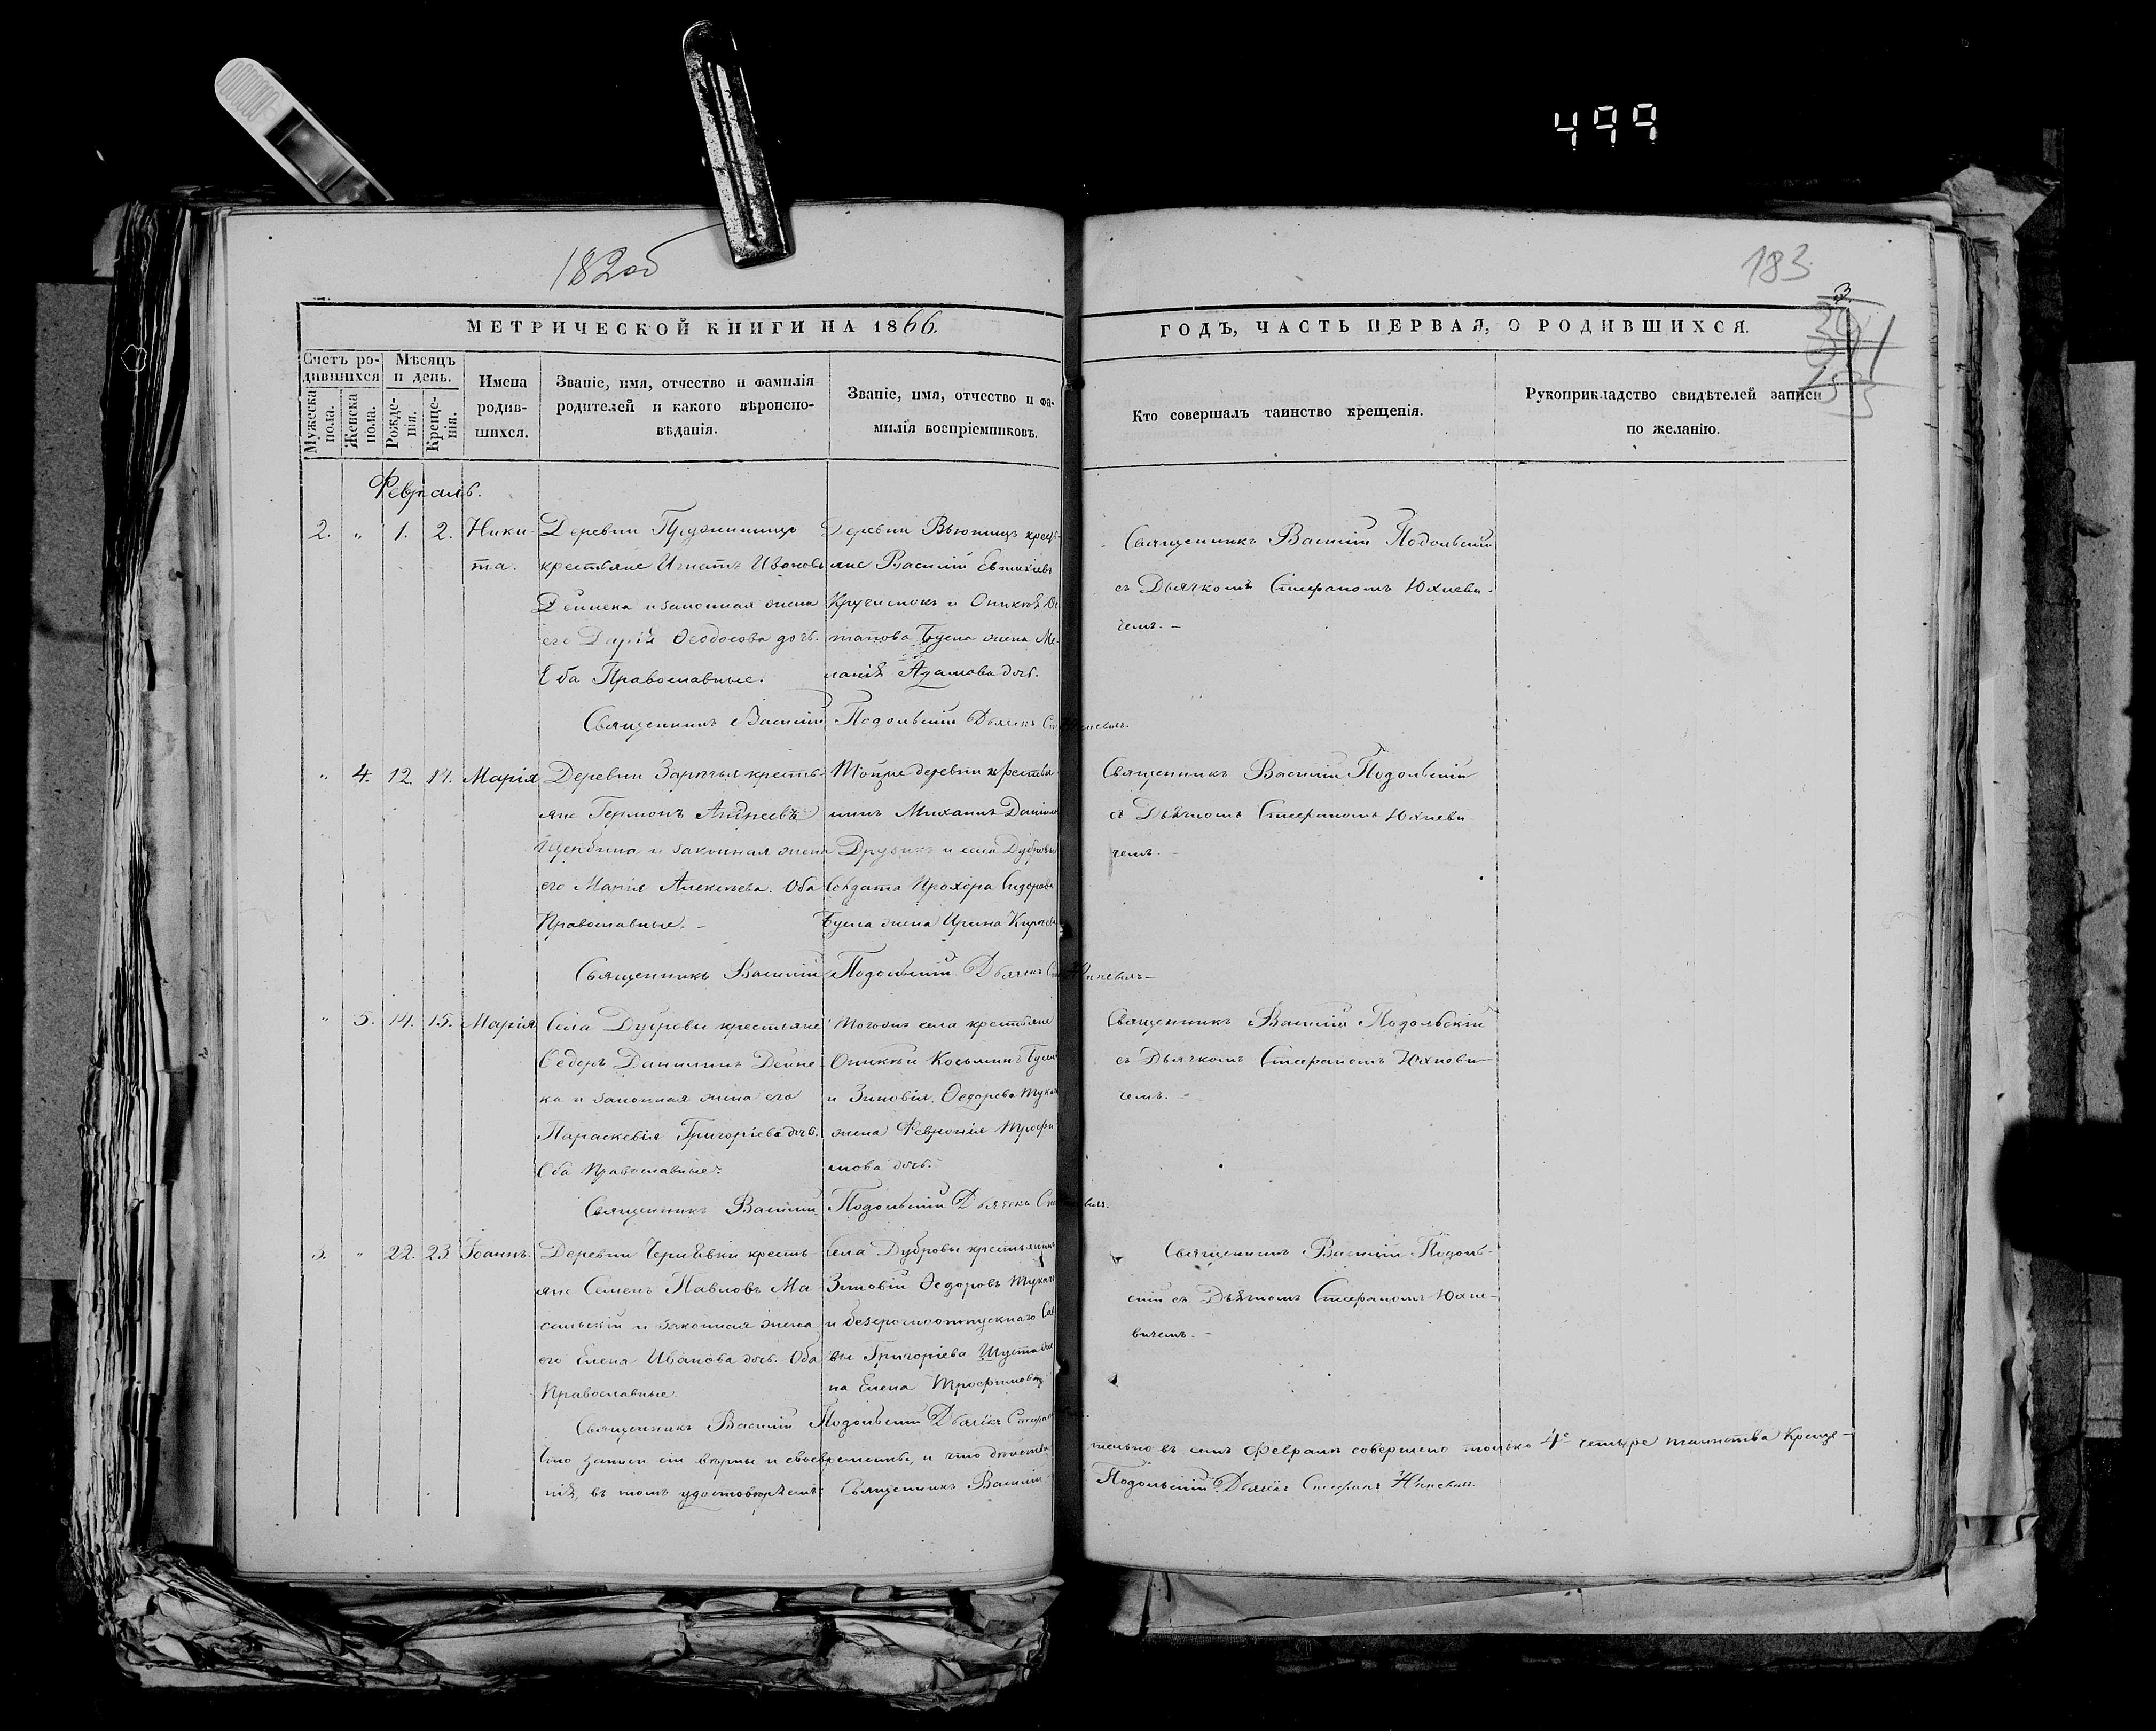 499
182об
183
МЕТРИЧЕСКОЙ КНИГИ НА 1866.
ГОДЪ, ЧАСТЬ ПЕРВАЯ, О РОДИВШИХСЯ.
3
Счетъ ро-
дившихся
Мужеска пола.
Женска пола.
Мѣсяцъ
и день.
Рожде-
нія.
Креще-
нія.
Имена
родив-
шихся.
Званіе, имя, отчество и фамилія
родителей и какого вѣроиспо-
вѣданія.
Званіе, имя, отчество и фа-
милія воспріемниковъ.
Кто совершалъ таинство крещенія.
Рукоприкладство свидѣтелей записи
по желанію.
Февраль.
2. " 1. 2. Ники-
та.
Деревни
крестьяне Игнатъ Ивановъ
Дейнека и законная жена
его Дарія Ѳеодосова дочь.
Оба Православные.
Деревни Вьюнищъ кресть-
яне Василій
и
жена Ме-
ланія Адамова дочь.
Священникъ Василій Подольскій
съ Дьячкомъ Стефаномъ Юхневи-
чемъ. -
Священникъ Василій Подольскій Дьячекъ
" 4. 12. 14. Марія
Деревни Зарѣчья кресть-
яне Гермонъ Андреевъ
и законная жена
его Марія Алексѣева. Оба
Православные. -
Тойже деревни крестья-
нинъ Михаилъ
и села Дубровы
Солдата Прохора Сидорова
Бусла жена Ирина
Священникъ Василій Подольскій
съ Дьячкомъ Стефаномъ Юхневи-
чемъ. -
Священникъ Василій Подольскій Дьячекъ
" 5. 14. 15. Марія
Села Дубровы крестьяне
Ѳедоръ Данилинъ Дейне-
ка и законная жена его
Параскевія Григоріева дочь.
Оба Православные.
Тогоже села крестьяне
Косьминъ
и Зиновія Ѳедорова
жена Февронія Трофи
мова дочь.
Священникъ Василій Подольскій
съ Дьячкомъ Стефаномъ Юхневи-
чемъ. -
Священникъ Василій Подольскій Дьячекъ
3. " 22. 23 Іоаннъ.
Деревни Чернѣвки кресть-
яне Семенъ Павловъ Ма
сальскій и законная жена
его Елена Иванова дочь. Оба
Православные.
Села Дубровы крестьянинъ
Зиновій Ѳедоровъ
и безсрочноотпускнаго Сав
вы Григоріева Шуста же
на Елена Трофимова
Священникъ Василій Подоль-
скій съ Дьячкомъ Стефаномъ Юхне-
вичемъ. -
Священникъ Василій Подольскій Дьячекъ
Что записи сіи вѣрны и своевременны, и что дѣйстви
тельно въ семъ Февралѣ совершено только 4е четыре таинства Креще-
нія, въ томъ удостовѣряемъ: Священникъ Василій
Подольскій Дьячекъ Стефанъ Юхневичъ.